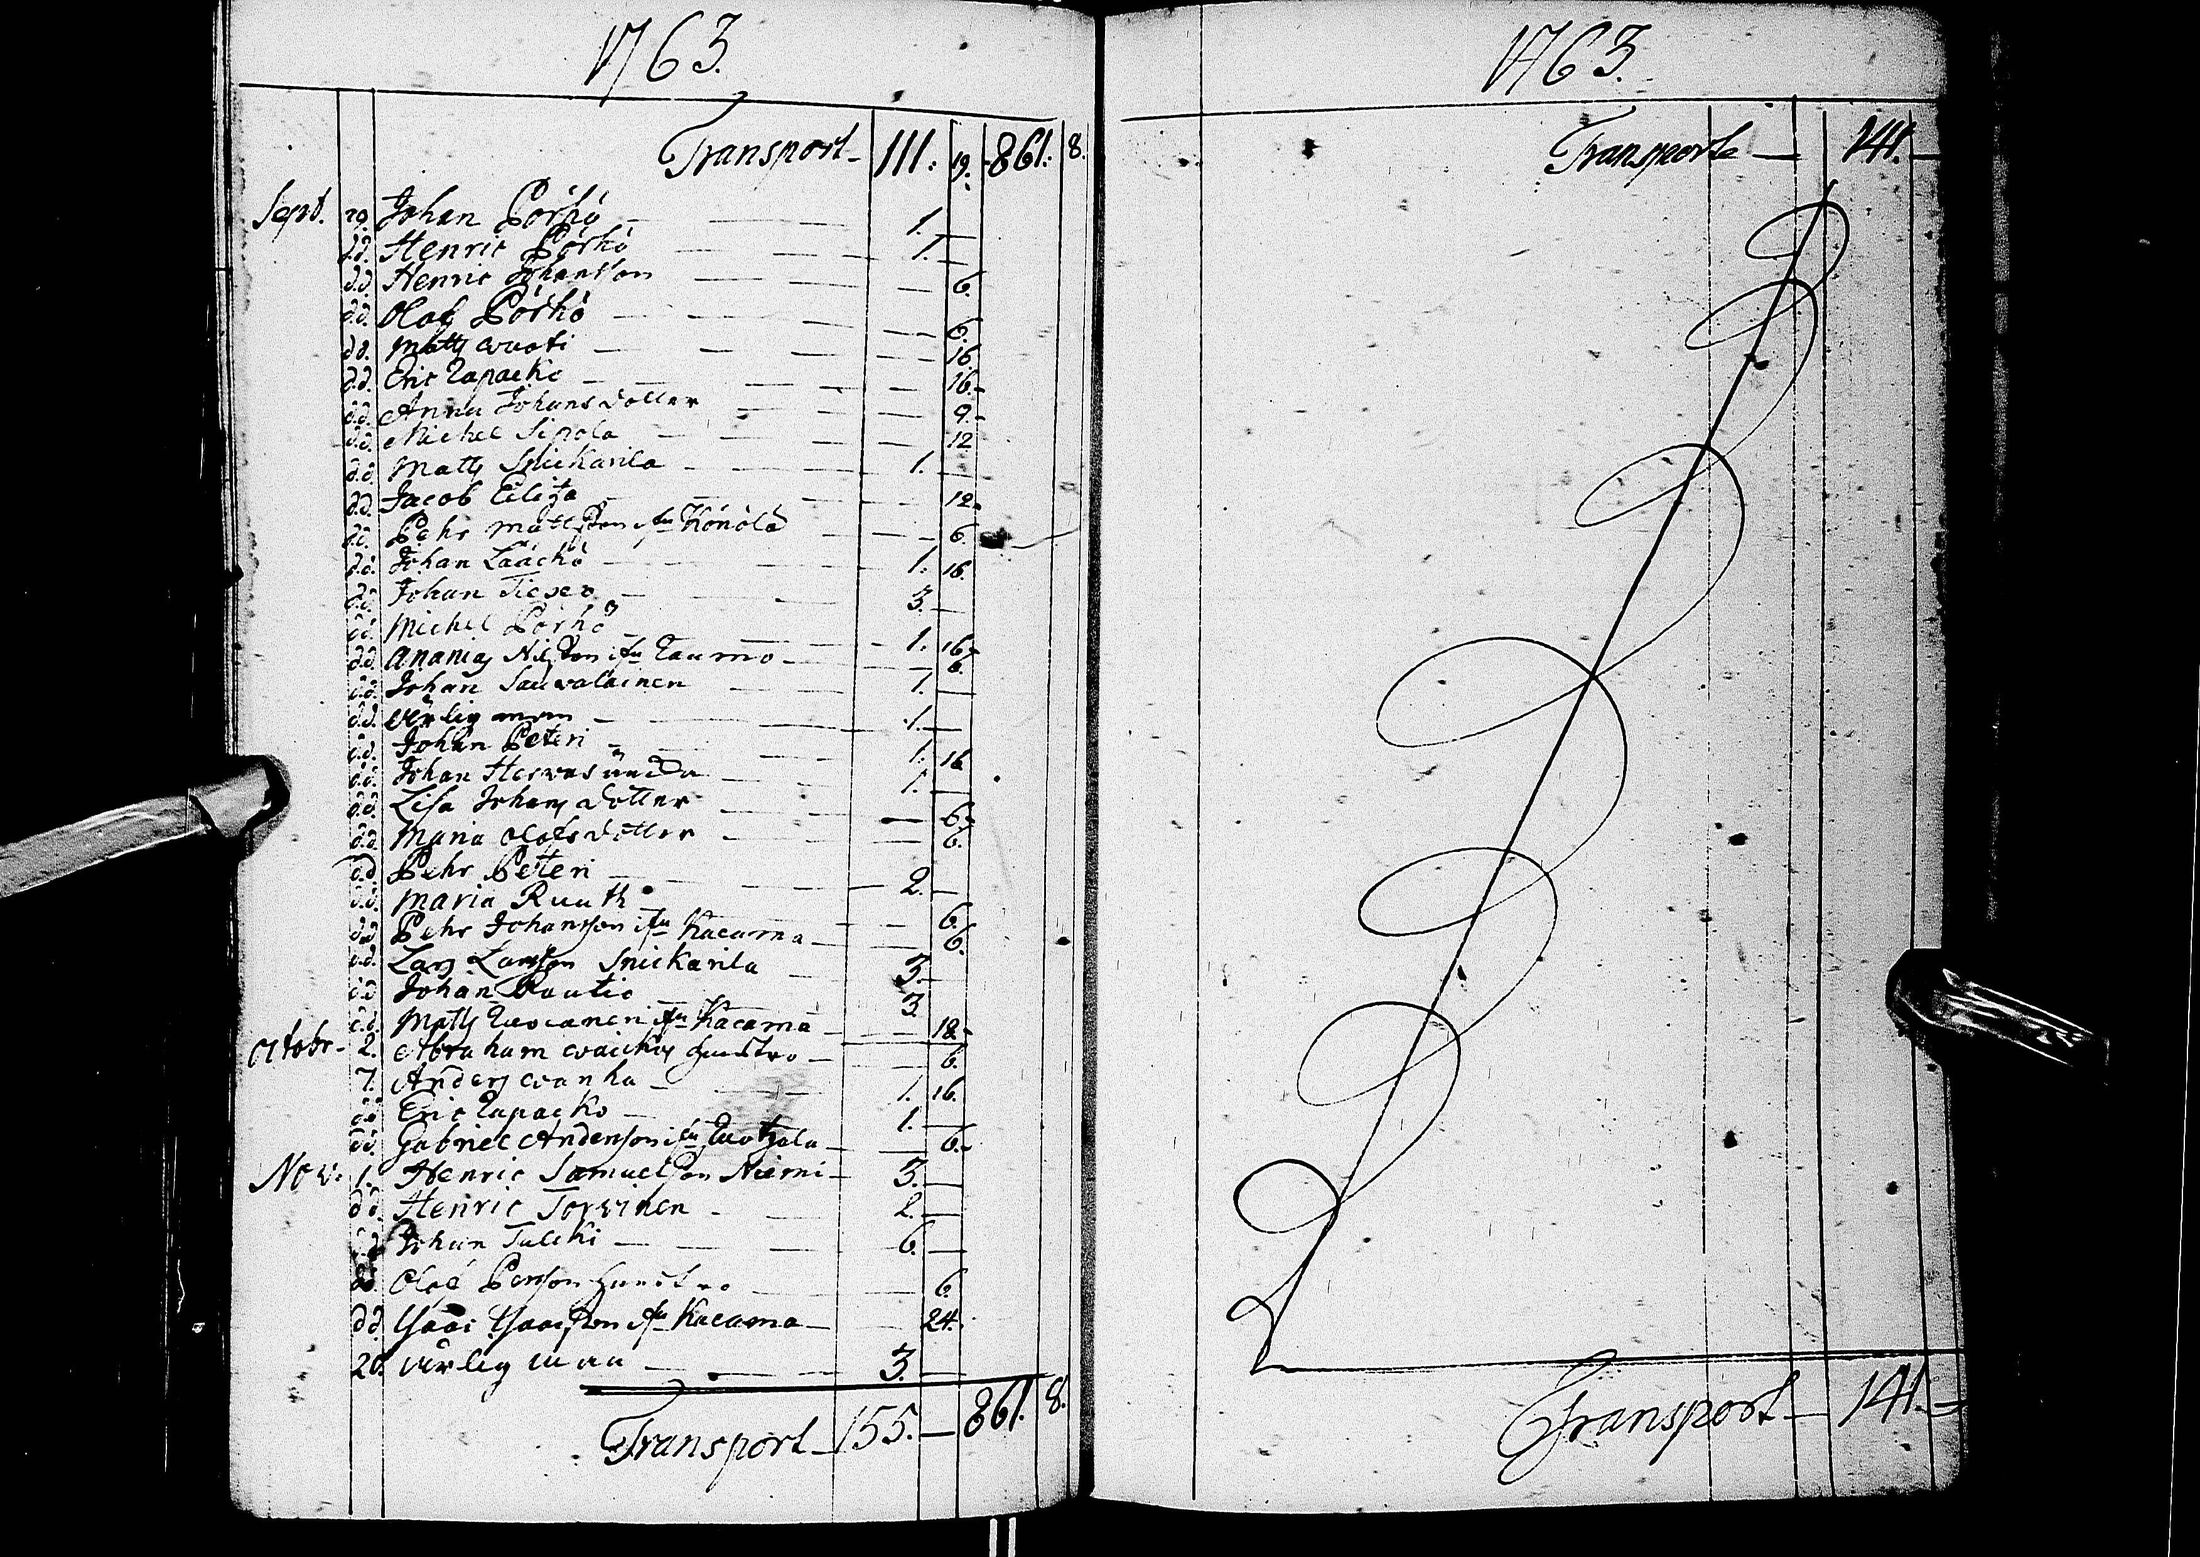 1763.
Transport 111. 19. 861. 8.
Sept. 29. Johan Pörhö 1.
d.d. Henric Pörhö 1.
d.d. Henric Johansson 6.
d.d. Olof Pörhö 6.
d.d. Matts wuoti 16
d.d. Eric Lapacko 16.
d.d. Anna Johans dotter 9.
d.d. Michel Sipola 12
d.d. Matts Snickarila 1.
d.d. Jacob 12.
d.d. Pehr Mattsson ifrn Könölä 6.
d.d. Johan Lääckö 1. 16.
d.d. Johan Tieper 3.
d.d. Michel Pörhö 1. 16.
d.d. Ananias Nilsson ifrn Laumo 6.
d.d. Johan Sauvalainen 1.
d.d. ärlig man 1.
d.d. Johan Peteri 1. 16
d.d. Johan 1.
d.d. Lisa Johans dotter 6.
d.d. Maria Olofs dotter 6.
d.d. Pehr Peteri 2.
d.d. Maria Ruuth 6.
d.d. Pehr Johansson ifrn Kacama 6.
d.d. Lars Larsson Snickarila 3.
d.d. Johan Rautio 3.
d.d. Matts ifrn Kacama 18.
Octobr. 2. Abraham hustro 6.
7. Anders wanha 1. 16.
d.d. Eric Lapacko 1.
d.d. Gabriel Andersson ifrn 6.
Nov. 1. Henric Samuelsson Niemi 3.
d.d. Henric Torvinen 2.
d.d. Johan Tulcki 6.
Olof Persson hustro 6.
d.d. Ysaac Ysaacsson ifrn Kacama 24.
20. ärlig man 3.
Transport 155. 861. 8.
1763.
Transport 141.
Transport 141.